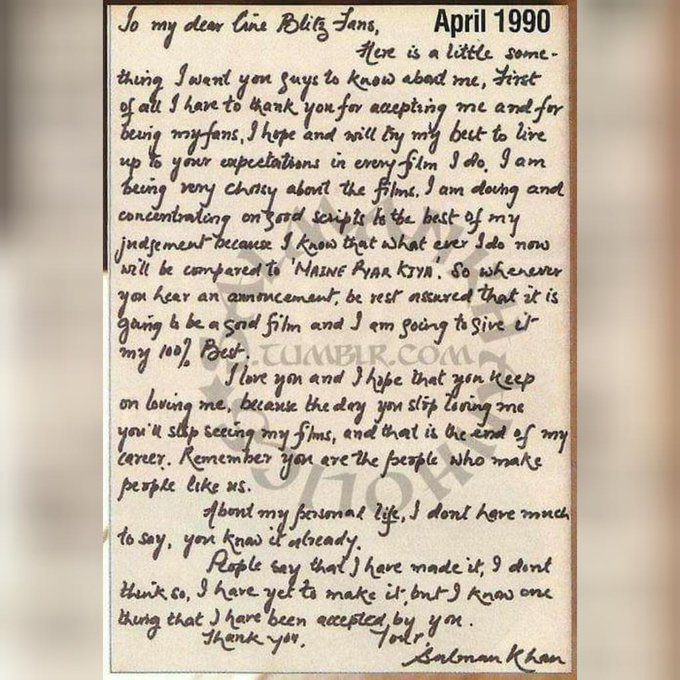 April 1990
To my dear Cine Blitz Fans,
Here is a little some-
thing I want you guys to know about me, First
of all I have to thank you for accepting me and for
being my fans, I hope and will try my best to live
up to your expectations in every film I do. I am
being very choisy about the films. I am doing and
concentrating on good scripts to the best of my
judgement because I know that what ever I do now
will be compared to 'MAINE PYAR KIYA'. So whenever
you hear an annoucement, be rest assured that it is
going to be a good film and I am going to give it
my 100% Best.
I love you and I hope that you keep
on loving me, because the day you stop loving me
you'll stop seeing my films, and that is the end of my
career. Remember you are the people who make
people like us.
About my personal life, I dont have much
to say, you know it already.
People say that I have made it, I dont
think so, I have yet to make it, but I know one
thing that I have been accepted by you.
Thank you. Your,
Salman Khan
.TUMBLR.COM